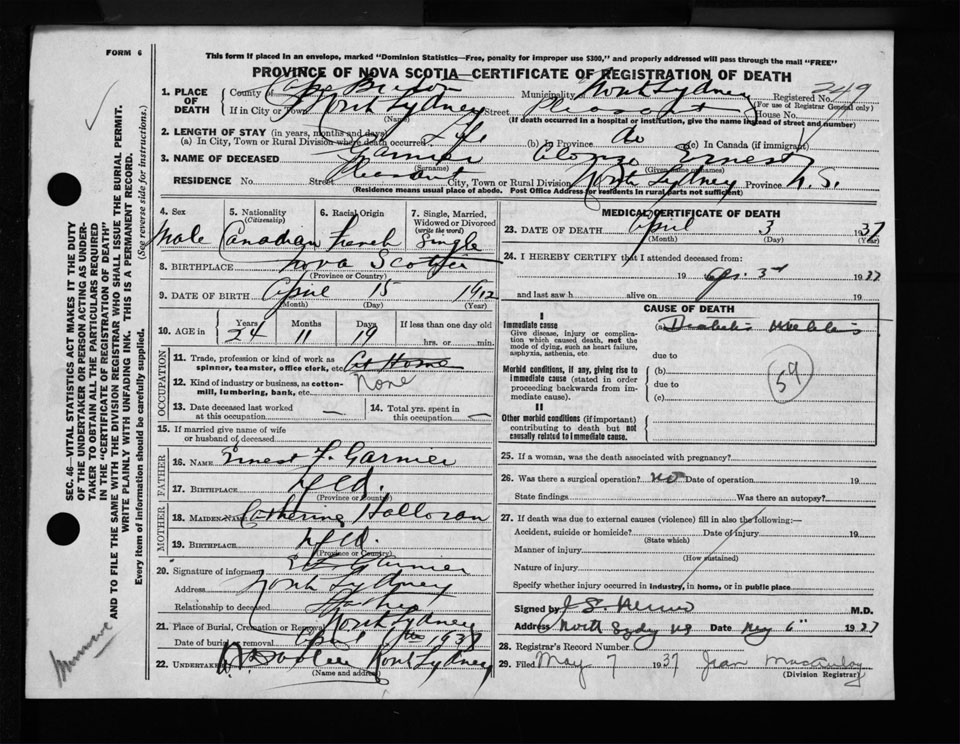 FORM 6
This form if placed in an envelope, marked "Dominion Statistics—Free, penalty for improper use $300," and properly addressed will pass through the mail "FREE"
PROVINCE OF NOVA SCOTIA—CERTIFICATE OF REGISTRATION OF DEATH
1. PLACE OF DEATH County of Cape Breton Municipality North Sydney Registered No. 349
(For use of Registrar General only)
If in City or Town North Sydney Street Pleasant House No.
(Name) (If death occurred in a hospital or institution, give the name instead of street and number)
2. LENGTH OF STAY (in years, months and days)
(a) In City, Town or Rural Division where death occurred Life (b) In Province do (c) In Canada (if immigrant)
3. NAME OF DECEASED Garnier Alonzo Ernest
(Surname) (Given name or names)
RESIDENCE No. Street Pleasant City, Town or Rural Division North Sydney Province N.S.
(Residence means usual place of abode. Post Office Address for residents in rural parts not sufficient)
4. Sex Male
5. Nationality (Citizenship) Canadian
6. Racial Origin French
7. Single, Married, Widowed or Divorced (write the word) Single
8. BIRTHPLACE Nova Scotia
(Province or Country)
9. DATE OF BIRTH April 15 1912
(Month) (Day) (Year)
10. AGE in Years 24 Months 11 Days 19 If less than one day old
hrs. or min.
OCCUPATION
11. Trade, profession or kind of work as spinner, teamster, office clerk, etc. At Home
12. Kind of industry or business, as cotton-mill, lumbering, bank, etc. None
13. Date deceased last worked at this occupation —
14. Total yrs. spent in this occupation —
15. If married give name of wife or husband of deceased
FATHER
16. NAME Ernest F. Garnier
17. BIRTHPLACE Nfld.
(Province or Country)
MOTHER
18. MAIDEN NAME Catherine Halloran
19. BIRTHPLACE Nfld.
(Province or Country)
20. Signature of informant Garnier
Address North Sydney
Relationship to deceased Father
21. Place of Burial, Cremation or Removal North Sydney
Date of burial or removal April 1937
22. UNDERTAKER North Sydney
(Name and address)
MEDICAL CERTIFICATE OF DEATH
23. DATE OF DEATH April 3 1937
(Month) (Day) (Year)
24. I HEREBY CERTIFY that I attended deceased from:
19 Apr. 3rd 1937
and last saw h alive on 19
CAUSE OF DEATH
I
Immediate cause (a) Diabetes Mellitus
Give disease, injury or complication which caused death, not the mode of dying, such as heart failure, asphyxia, asthenia, etc
due to
Morbid conditions, if any, giving rise to immediate cause (stated in order proceeding backwards from immediate cause).
(b)
due to
(c)
59
II
Other morbid conditions (if important) contributing to death but not causally related to immediate cause.
25. If a woman, was the death associated with pregnancy?
26. Was there a surgical operation? no Date of operation 19
State findings Was there an autopsy?
27. If death was due to external causes (violence) fill in also the following:—
Accident, suicide or homicide? Date of injury 19
(State which)
Manner of injury
(How sustained)
Nature of injury
Specify whether injury occurred in industry, in home, or in public place
Signed by M.D.
Address North Sydney NS Date May 6" 1937
28. Registrar's Record Number
29. Filed May 7 1937 Jean
(Division Registrar)
SEC. 46—VITAL STATISTICS ACT MAKES IT THE DUTY
OF THE UNDERTAKER OR PERSON ACTING AS UNDER-
TAKER TO OBTAIN ALL THE PARTICULARS REQUIRED
IN THE "CERTIFICATE OF REGISTRATION OF DEATH"
AND TO FILE THE SAME WITH THE DIVISION REGISTRAR WHO SHALL ISSUE THE BURIAL PERMIT.
WRITE PLAINLY WITH UNFADING INK. THIS IS A PERMANENT RECORD.
Every item of information should be carefully supplied.
(See reverse side for instructions.)